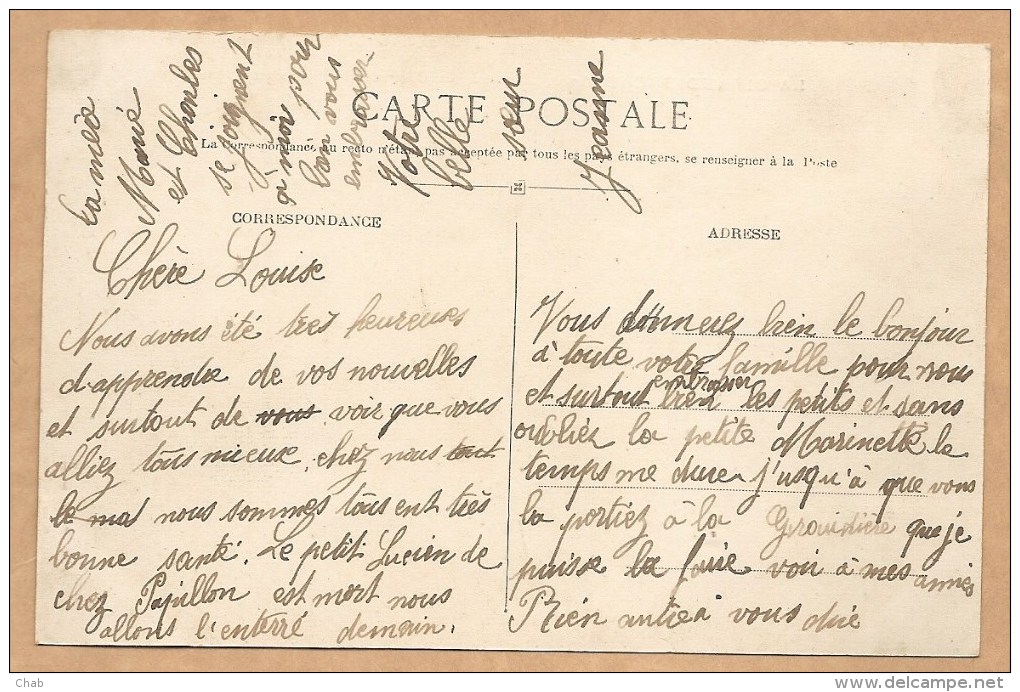 CARTE POSTALE
La Correspondance au recto n'étant pas acceptée par tous les pays étrangers, se renseigner à la Poste
CORRESPONDANCE
ADRESSE
Chère Louise
Nous avons été tres heureuses
d'apprendre de vos nouvelles
et surtout de vous voir que vous
alliez tous mieux, chez nous tout
le mal nous sommes tous ent très
bonne santé. Le petit Lucien de
chez Papillon est mort nous
allons l'enterré demain.
Vous donnerez bien le bonjour
à toute votre famille pour nous
et surtout bien embrasser les petits et sans
oubliez la petite Marinette le
temps me dure j'usqu'à que vous
la portiez à la Giraudière que je
puisse la faire voir à mes amies
Rien autre a vous dire
La mèe
Marié
et Charles
se joignent
à moi pour
bien vous
embrasser
Votre
belle
soeur
Jeanne
Chab
delcampe.net